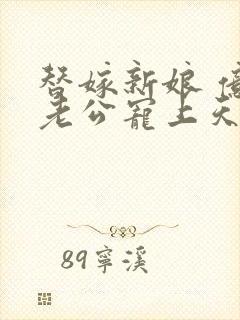 替嫁新娘 億
老公寵上天
89寧溪